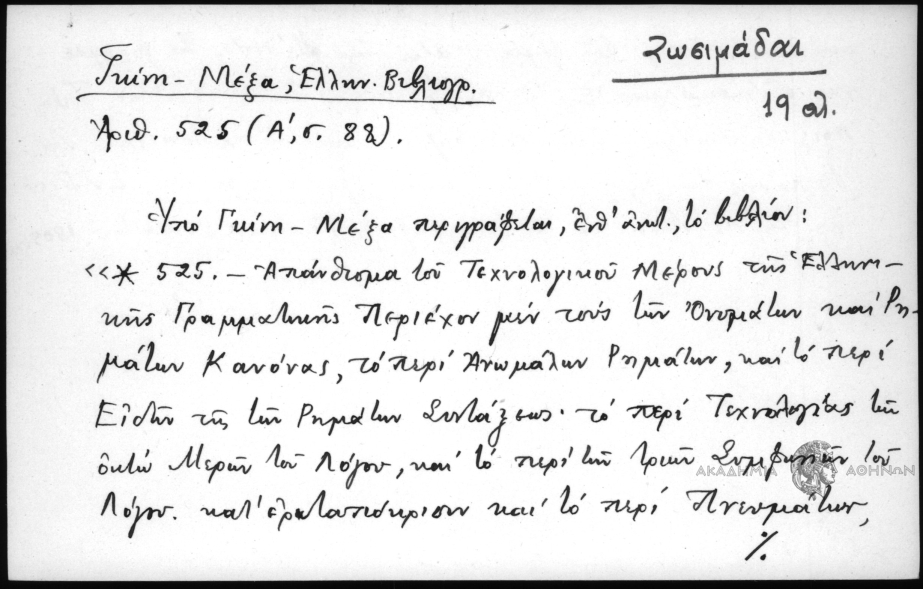 Ζωσιμάδαι
19 αἰ.
Γκίνη - Μέξα, Ἑλλην. Βιβλιογρ.
Ἀριθ. 525 (Α', σ. 88).
Ὑπό Γκίνη - Μέξα περιγράφεται, ἐπ' ἀντ., τό βιβλίον:
«* 525. - Ἀπάνθισμα τοῦ Τεχνολογικοῦ Μέρους τῆς Ἑλληνι-
κῆς Γραμματικῆς Περιέχον μέν τούς τῶν Ὀνομάτων καί Ρη-
μάτων Κανόνας, τό περί Ἀνωμάλων Ρημάτων, καί τό περί
Εἰδῶν τῆς τῶν Ρημάτων Συντάξεως· τό περί Τεχνολογίας τῶν
ὀκτώ Μερῶν τοῦ Λόγου, καί τό περί τῶν τριῶν Συμφωνιῶν τοῦ
Λόγου. κατ' ἐρωταπόκρισιν καί τό περί Πνευμάτων,
%
ΑΚΑΔΗΜΙΑ ΑΘΗΝΩΝ